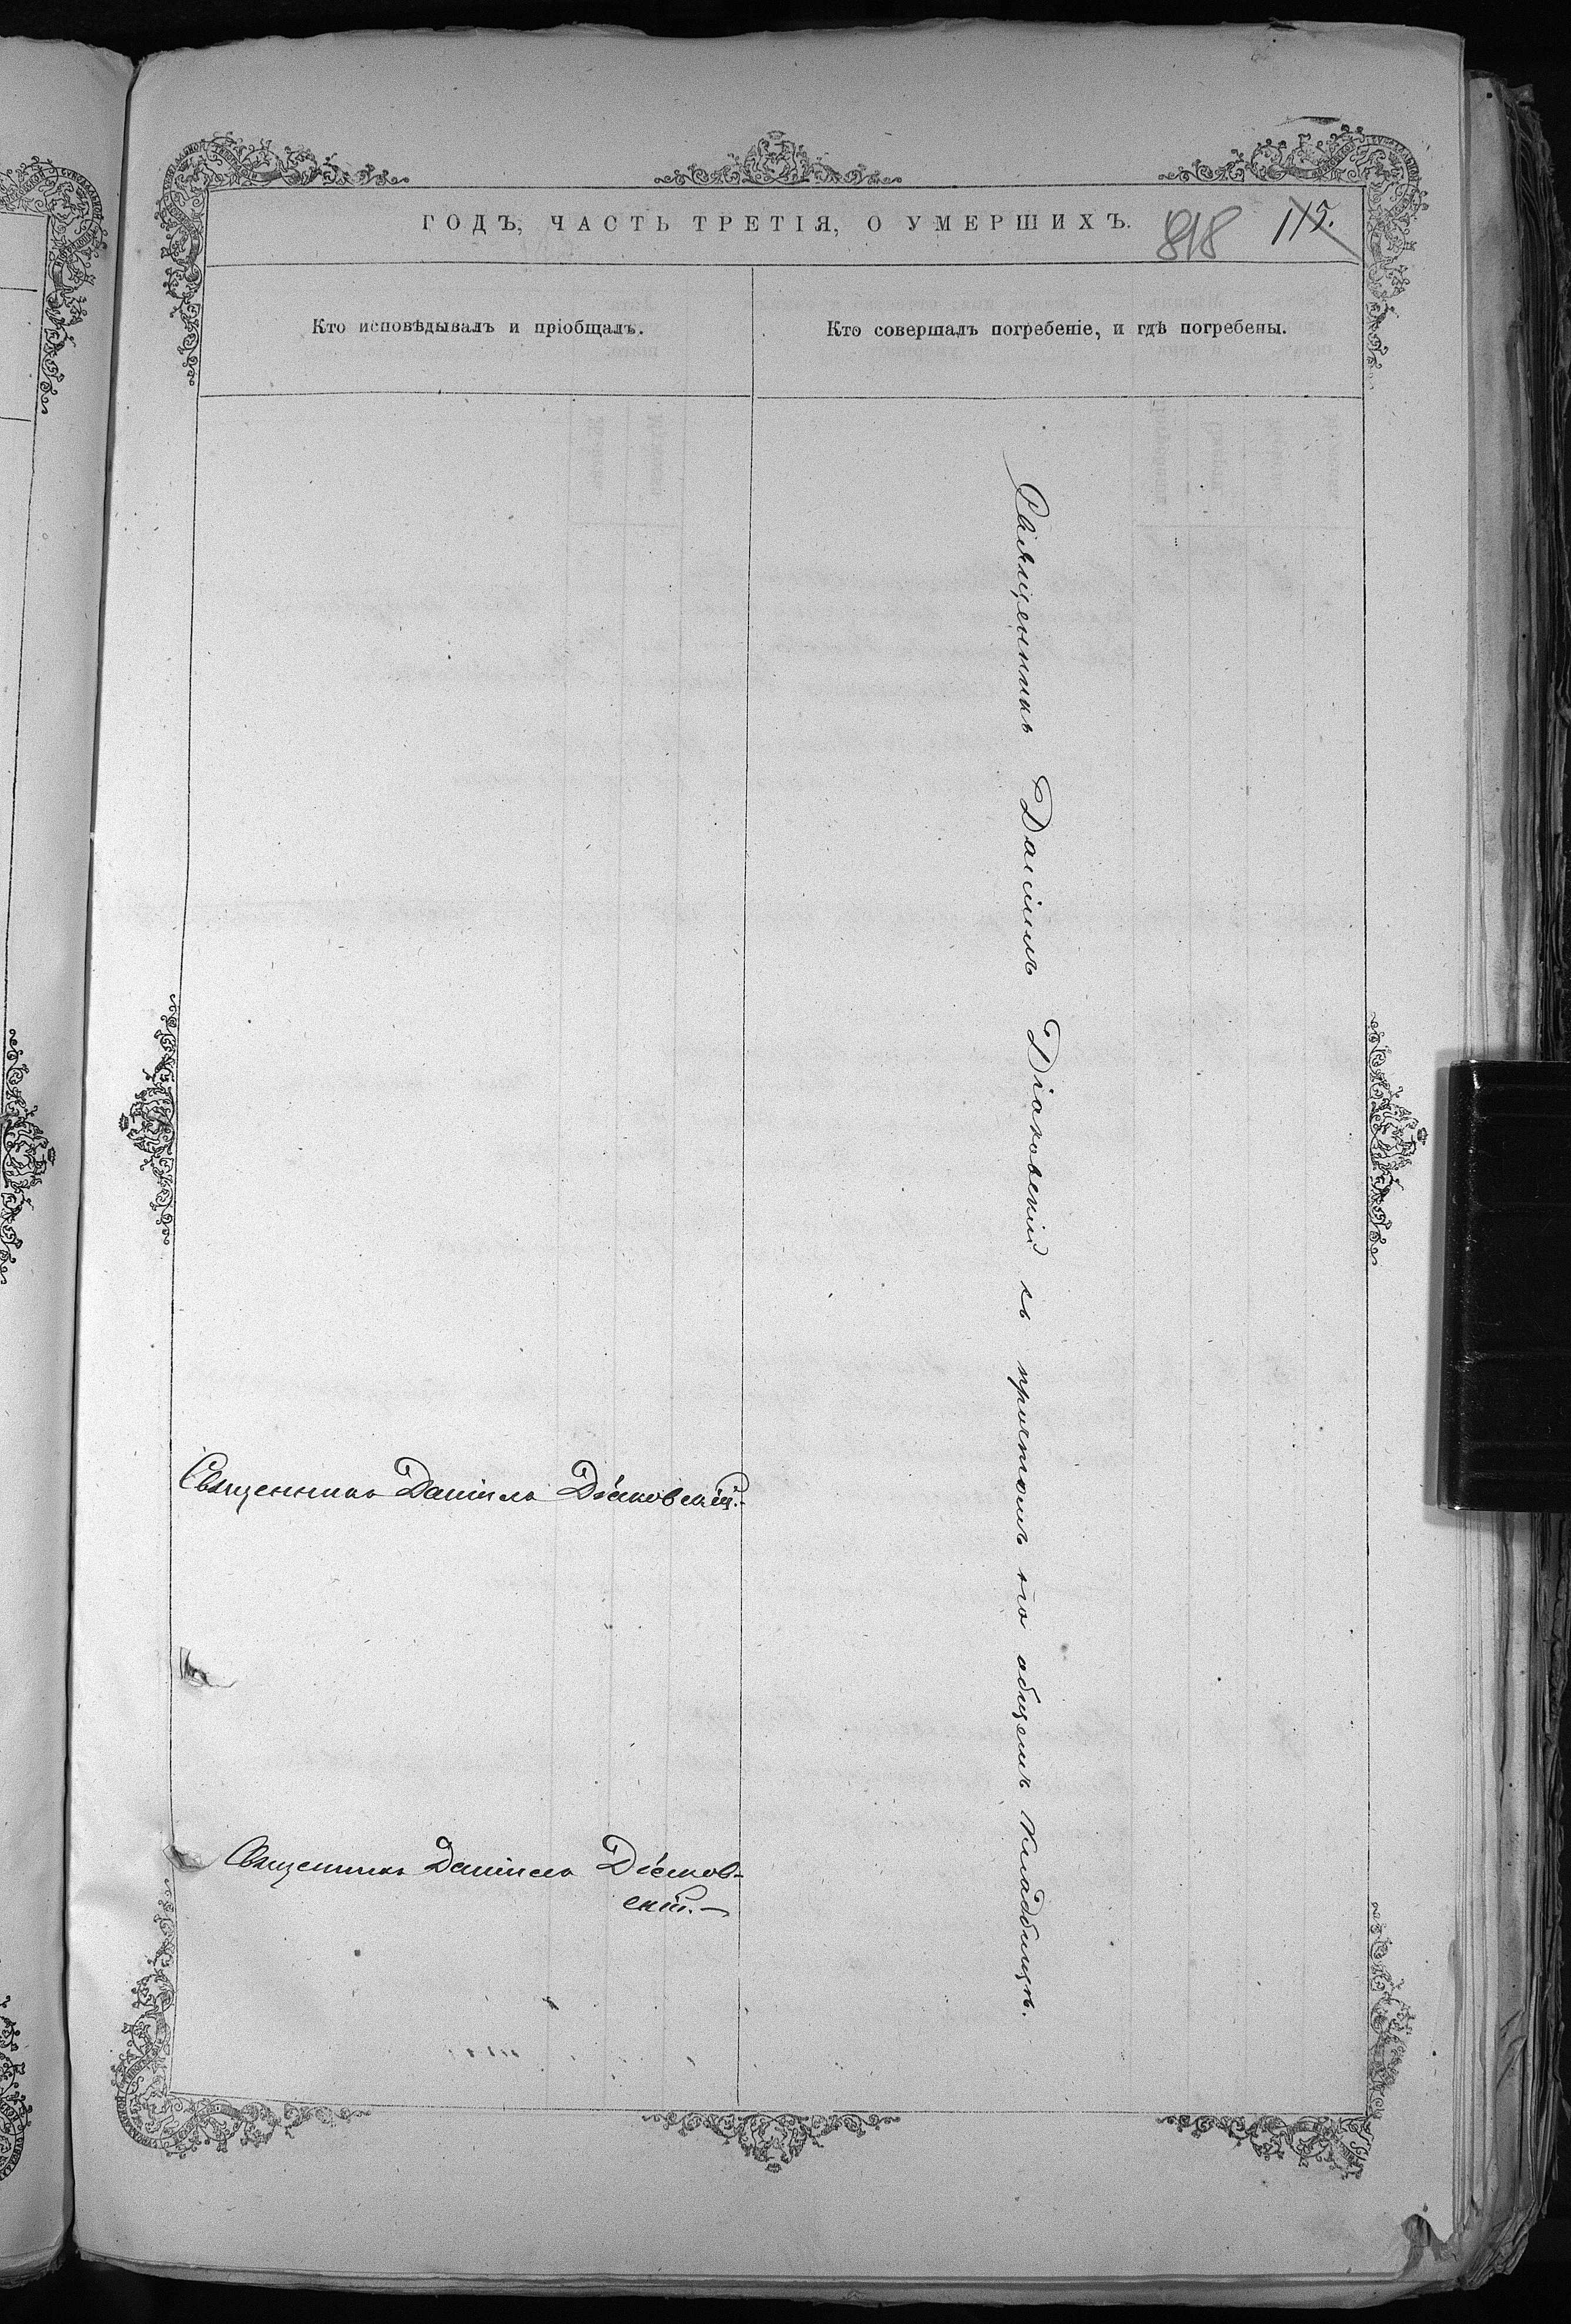 ГОДЪ, ЧАСТЬ ТРЕТІЯ, О УМЕРШИХЪ.
818
115.
Кто исповѣдывалъ и пріобщалъ.
Кто совершалъ погребеніе, и гдѣ погребены.
Священникъ Даніилъ Діаковскій съ причтомъ на общемъ кладбищѣ.
Священникъ Даніилъ Діаковскій.
Священникъ Даніилъ Діаков-
скій.—